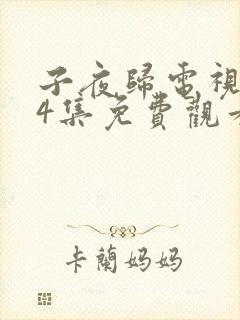 子夜歸電視
4集免費觀看
卡蘭媽媽